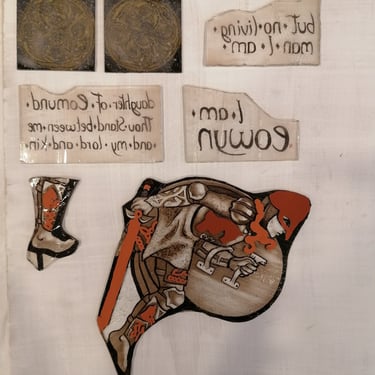 but·no·living
man·I·am·
I·am·
eowyn
daughter·of·Eomund·
Thou·Stand·between·me
·and·my·lord·and·kin